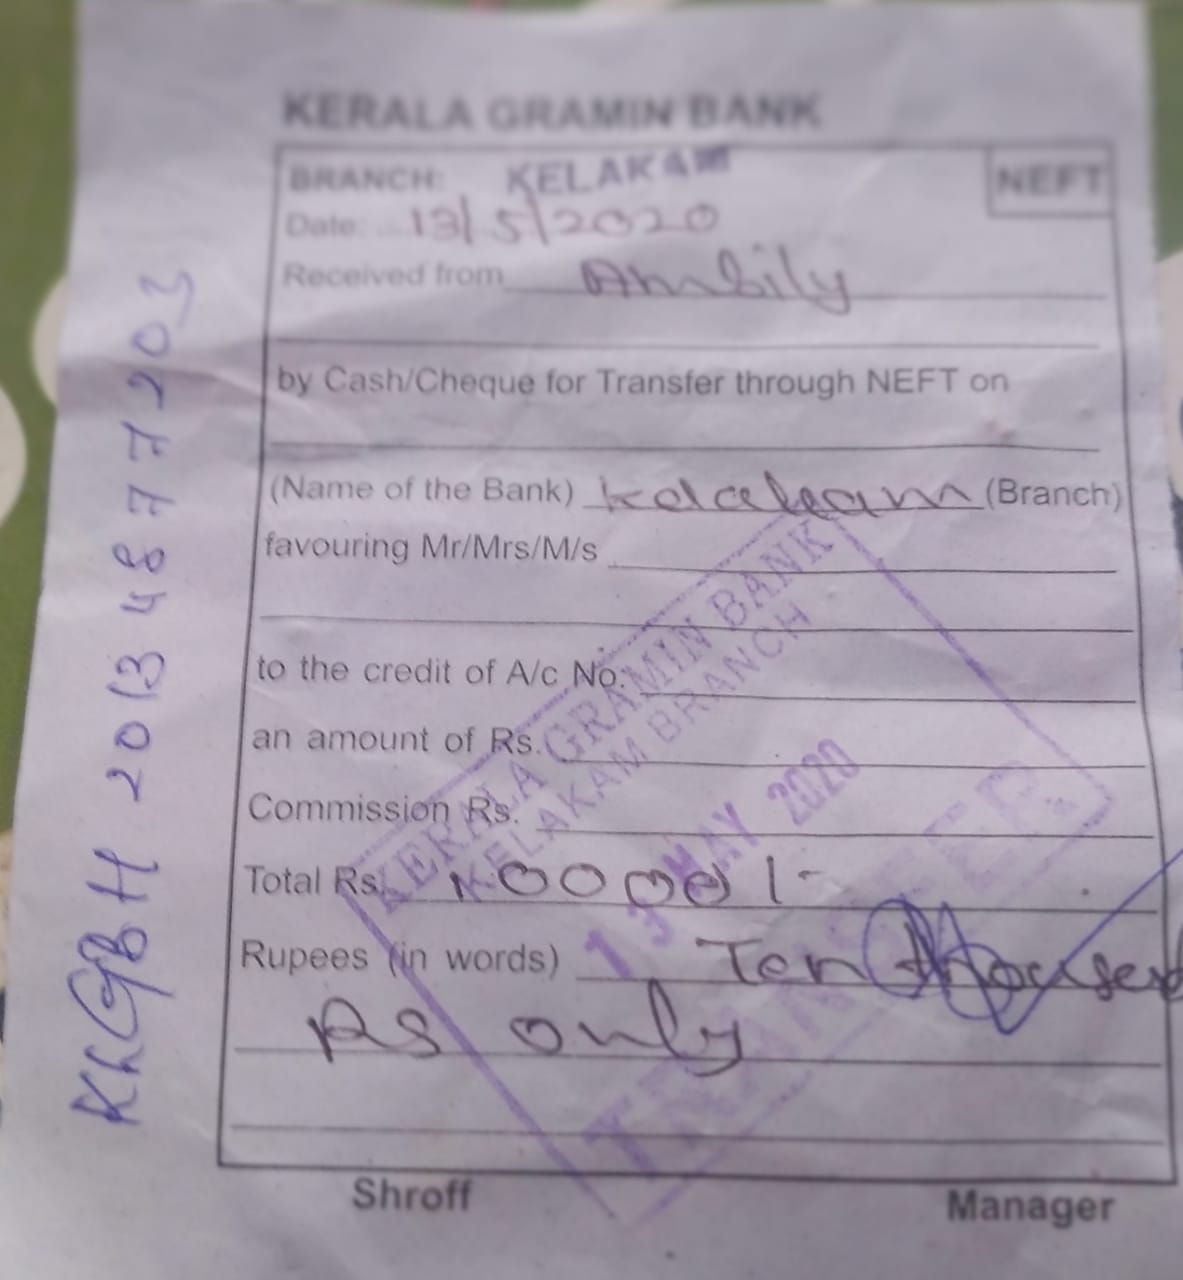 KERALA GRAMIN BANK
BRANCH: KELAKAM NEFT
Date: 13/5/2020
Received from Ambily
by Cash/Cheque for Transfer through NEFT on
(Name of the Bank) Kelakam (Branch)
favouring Mr/Mrs/M/s
to the credit of A/c No.
an amount of Rs.
Commission Rs.
Total Rs. 10000/-
Rupees (in words) Ten thousand
Rs only
Shroff Manager
KERALA GRAMIN BANK
KELAKAM BRANCH
13 MAY 2020
TRANSFER
20134877203